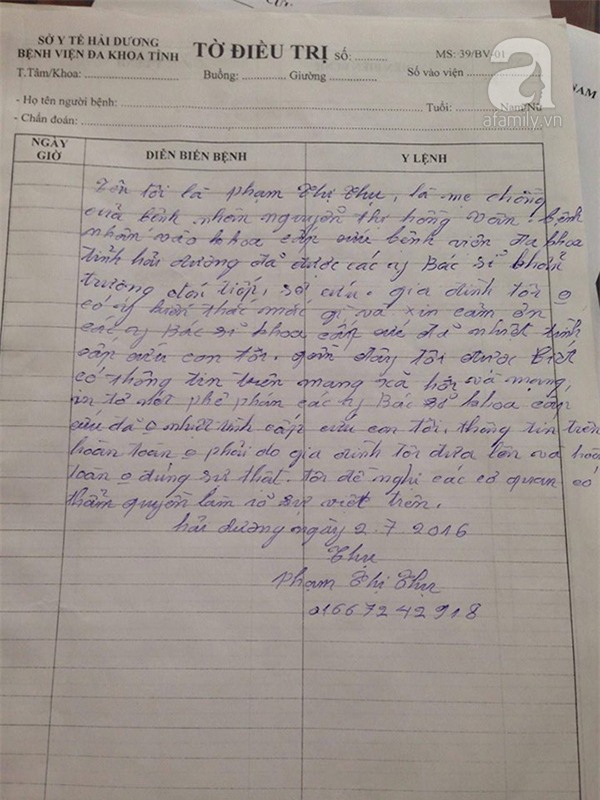 SỞ Y TẾ HẢI DƯƠNG
BỆNH VIỆN ĐA KHOA TỈNH
TỜ ĐIỀU TRỊ SỐ: ..........
MS: 39/BV-01
T.Tâm/Khoa: .............................. Buồng: ............. Giường ............. Số vào viện ..............
- Họ tên người bệnh: ........................ Tuổi: ............ Nam/Nữ
- Chẩn đoán: ........................
NAM
a
afamily.vn
NGÀY GIỜ
DIỄN BIẾN BỆNH
Y LỆNH
Tên tôi là phạm Thị Thự, là mẹ chồng
của bệnh nhân nguyễn thị hồng vân! bệnh
nhân vào khoa cấp cứu bệnh viện đa khoa
tỉnh hải dương đã được các y Bác sĩ khẩn
trương đón tiếp, sơ cứu. gia đình tôi o
có ý kiến thắc mắc gì và xin cảm ơn
các y Bác sĩ khoa cấp cứu đã nhiệt tình
cấp cứu con tôi. gần đây tôi được biết
có thông tin trên mạng xã hội và mạng,
in tờ nét phê phán các y Bác sĩ khoa cấp
cứu đã o nhiệt tình cấp cứu con tôi, thông tin trên
hoàn toàn o phải do gia đình tôi đưa lên và hoàn
toàn o đúng sự thật. tôi đề nghị các cơ quan có
thẩm quyền làm rõ sự việt trên.
hải dương ngày 2.7.2016
Thự
phạm Thị Thự
01667242918